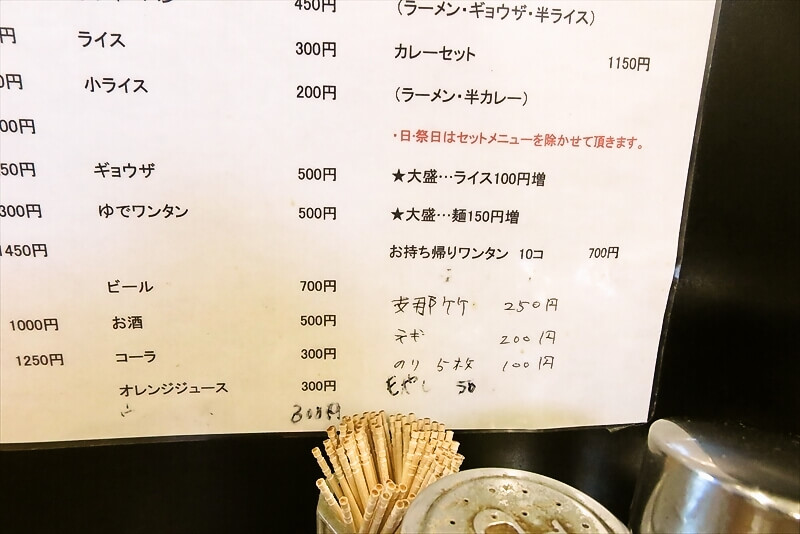 円
0円
00円
50円
300円
1450円
1000円
1250円
450円
ライス 300円
小ライス 200円
ギョウザ 500円
ゆでワンタン 500円
ビール 700円
お酒 500円
コーラ 300円
オレンジジュース 300円
300円
(ラーメン・ギョウザ・半ライス)
カレーセット 1150円
(ラーメン・半カレー)
・日・祭日はセットメニューを除かせて頂きます。
★大盛…ライス100円増
★大盛…麺150円増
お持ち帰りワンタン 10コ 700円
支那竹 250円
ネギ 200円
のり 5枚 100円
もやし 50